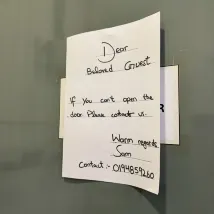 Dear
Beloved Guest
If You can't open the
door Please contact us.
Warm regards
Sam
Contact :- 0194859260
R